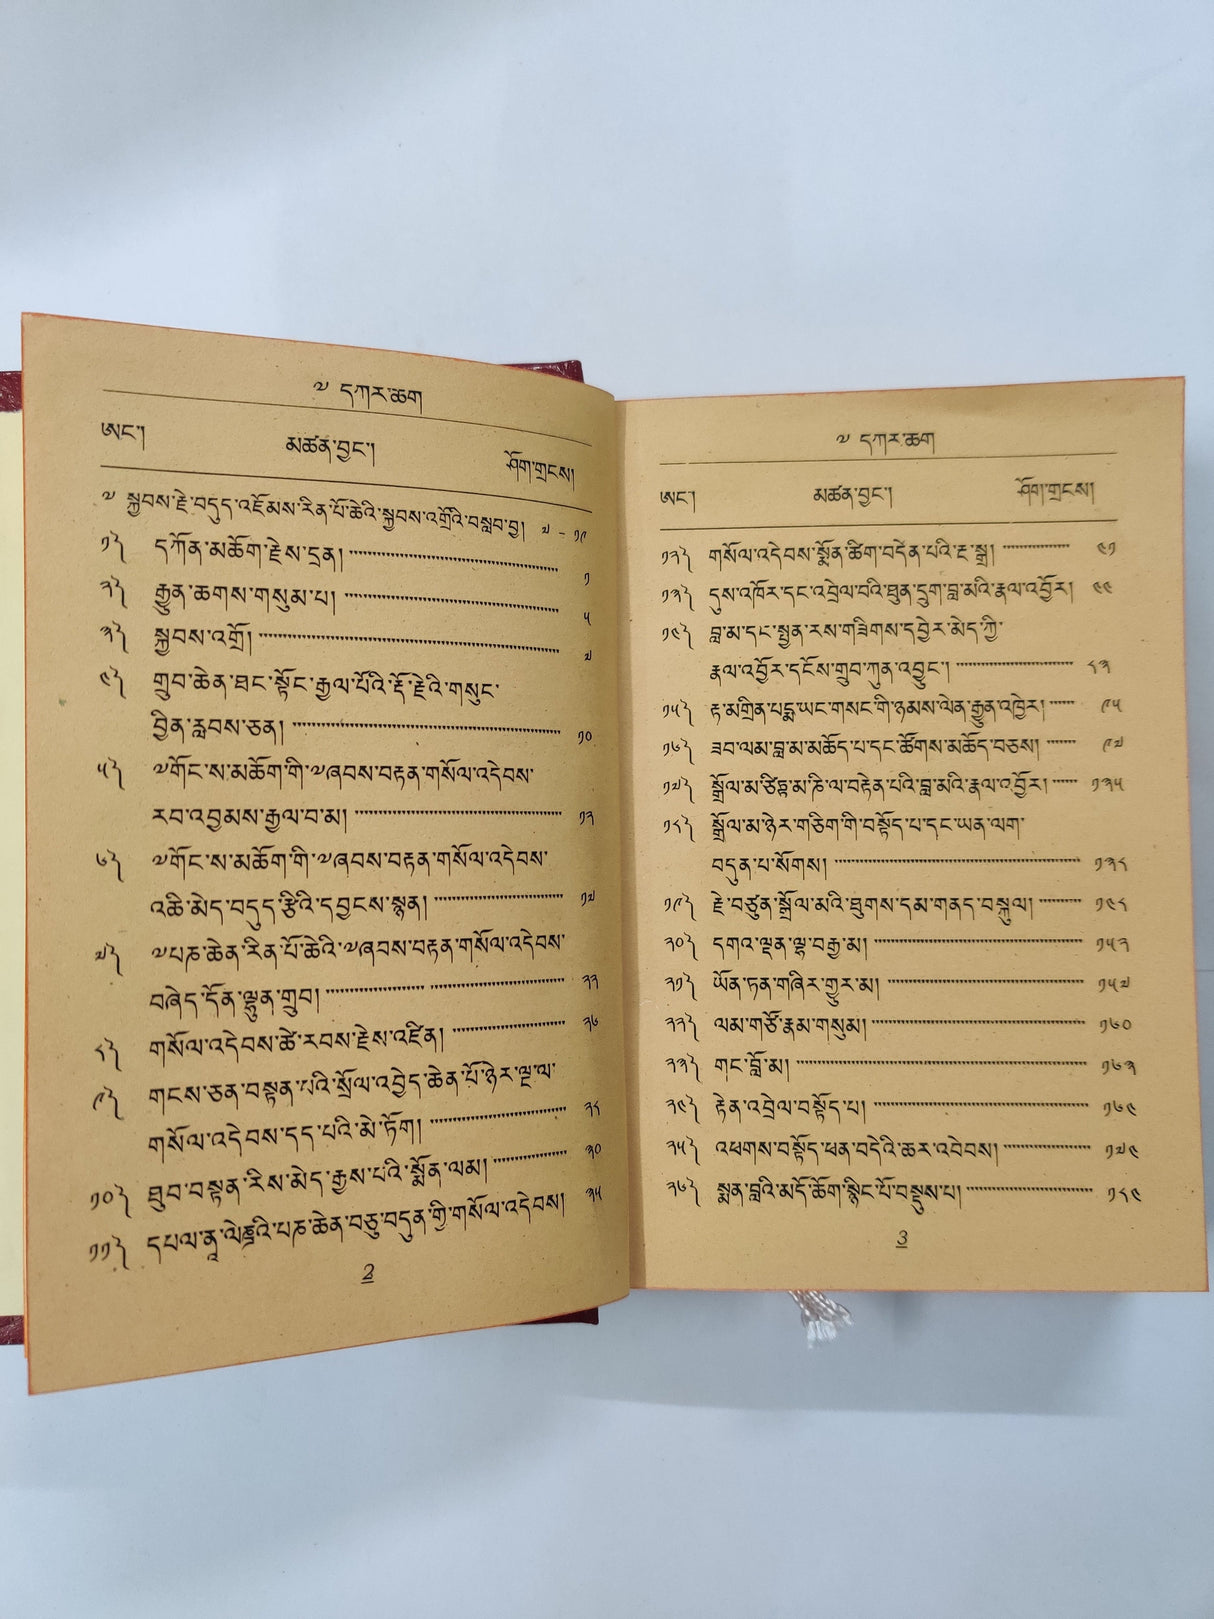 ༧ དཀར་ཆག
ཨང་།
མཚན་བྱང་།
ཤོག་གྲངས།
༧ སྐྱབས་རྗེ་བདུད་འཇོམས་རིན་པོ་ཆེའི་སྐྱབས་འགྲོའི་བསླབ་བྱ། ༧ - ༡༩
༡༽ དཀོན་མཆོག་རྗེས་དྲན། ༡
༢༽ རྒྱུན་ཆགས་གསུམ་པ། ༥
༣༽ སྐྱབས་འགྲོ། ༧
༤༽ གྲུབ་ཆེན་ཐང་སྟོང་རྒྱལ་པོའི་རྡོ་རྗེའི་གསུང་
བྱིན་རླབས་ཅན། ༡༠
༥༽ ༧གོང་ས་མཆོག་གི་༧ཞབས་བརྟན་གསོལ་འདེབས་
རབ་འབྱམས་རྒྱལ་བ་མ། ༡༢
༦༽ ༧གོང་ས་མཆོག་གི་༧ཞབས་བརྟན་གསོལ་འདེབས་
འཆི་མེད་བདུད་རྩིའི་དབྱངས་སྙན། ༡༧
༧༽ ༧པཎ་ཆེན་རིན་པོ་ཆེའི་༧ཞབས་བརྟན་གསོལ་འདེབས་
བཞེད་དོན་ལྷུན་གྲུབ། ༢༢
༨༽ གསོལ་འདེབས་ཚེ་རབས་རྗེས་འཛིན། ༢༦
༩༽ གངས་ཅན་བསྟན་པའི་སྲོལ་འབྱེད་ཆེན་པོ་ཉེར་ལྔ་ལ་
གསོལ་འདེབས་དད་པའི་མེ་ཏོག། ༢༨
༡༠༽ ཐུབ་བསྟན་རིས་མེད་རྒྱས་པའི་སྨོན་ལམ། ༣༠
༡༡༽ དཔལ་ནཱ་ལེནྡྲའི་པཎ་ཆེན་བཅུ་བདུན་གྱི་གསོལ་འདེབས། ༣༥
2
༧ དཀར་ཆག
ཨང་།
མཚན་བྱང་།
ཤོག་གྲངས།
༡༢༽ གསོལ་འདེབས་སྨོན་ཚིག་བདེན་པའི་རྔ་སྒྲ། ༤༡
༡༣༽ དུས་འཁོར་དང་འབྲེལ་བའི་ཐུན་དྲུག་བླ་མའི་རྣལ་འབྱོར། ༤༤
༡༤༽ བླ་མ་དང་སྤྱན་རས་གཟིགས་དབྱེར་མེད་ཀྱི་
རྣལ་འབྱོར་དངོས་གྲུབ་ཀུན་འབྱུང་། ༨༣
༡༥༽ རྟ་མགྲིན་པདྨ་ཡང་གསང་གི་ཉམས་ལེན་རྒྱུན་འཁྱེར། ༩༥
༡༦༽ ཟབ་ལམ་བླ་མ་མཆོད་པ་དང་ཚོགས་མཆོད་བཅས། ༩༧
༡༧༽ སྒྲོལ་མ་ཙིཏྟ་མ་ཎི་ལ་བརྟེན་པའི་བླ་མའི་རྣལ་འབྱོར། ༡༢༥
༡༨༽ སྒྲོལ་མ་ཉེར་གཅིག་གི་བསྟོད་པ་དང་ཡན་ལག་
བདུན་པ་སོགས། ༡༣༨
༡༩༽ རྗེ་བཙུན་སྒྲོལ་མའི་ཐུགས་དམ་གནད་བསྐུལ། ༡༤༨
༢༠༽ དགའ་ལྡན་ལྷ་བརྒྱ་མ། ༡༥༢
༢༡༽ ཡོན་ཏན་གཞིར་གྱུར་མ། ༡༥༧
༢༢༽ ལམ་གཙོ་རྣམ་གསུམ། ༡༦༠
༢༣༽ གང་བློ་མ། ༡༦༣
༢༤༽ རྟེན་འབྲེལ་བསྟོད་པ། ༡༦༤
༢༥༽ འཕགས་བསྟོད་ཕན་བདེའི་ཆར་འབེབས། ༡༧༤
༢༦༽ སྨན་བླའི་མདོ་ཆོག་སྙིང་པོ་བསྡུས་པ། ༡༨༤
3